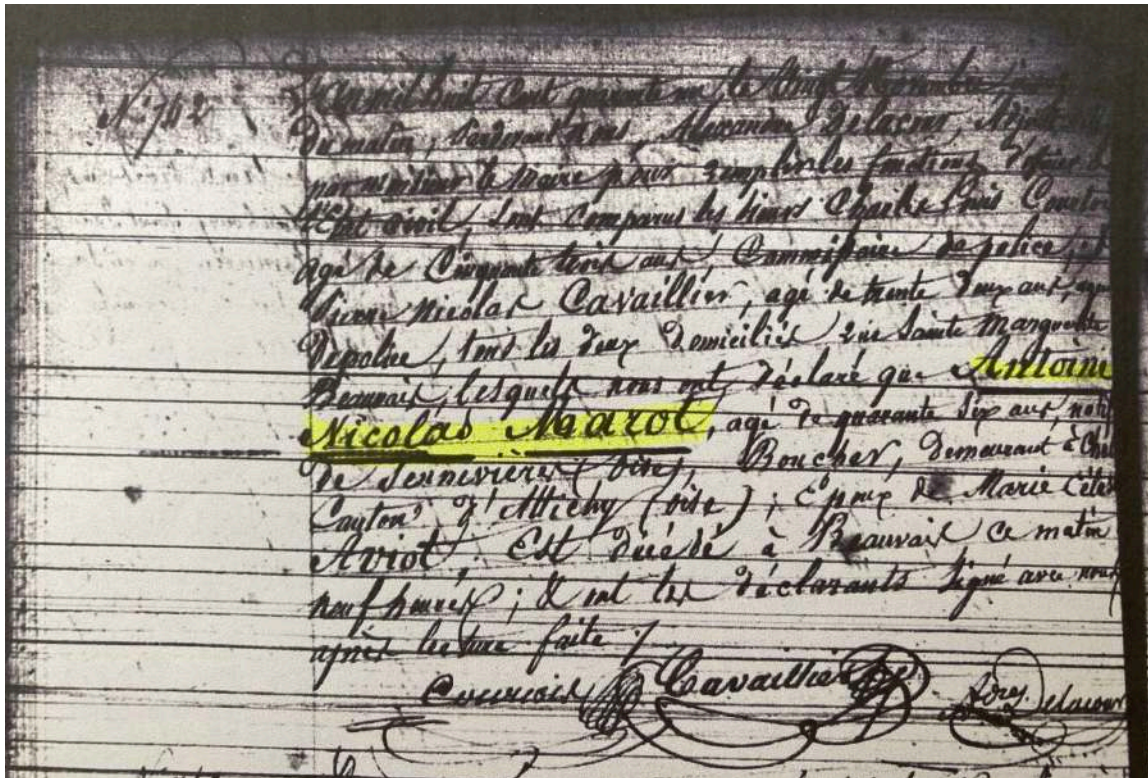 N° 762
L'an mil huit cent quarante un, le vingt
Du matin, pardevant nous, Alexandre Delacour, Adjoint
par monsieur le maire pour remplir les fonctions d'officier
L'Etat civil, sont comparus les sieurs Charles Louis
agé de Cinquante trois ans Commissaire de police, et
Pierre Nicolas Cavaillier, agé de trente deux ans,
De police, tous les deux Domiciliés rue Sainte Marguerite
Beauvais, lesquels nous ont déclaré que Antoine
Nicolas Marot, agé de quarante six ans, natif
de Sennevières (oise), Boucher, Demeurant à
Canton d'Attichy (oise); Epoux de Marie
Aviot, Est décédé à Beauvais ce matin
neuf heures; & ont les déclarants signé avec nous
après lecture faite /
Courtois Cavaillier Delacour